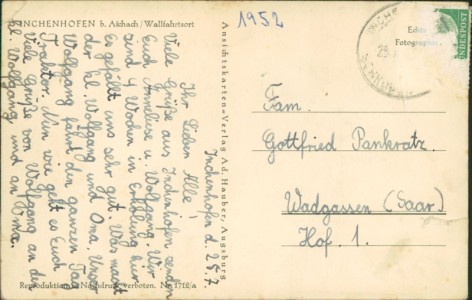 INCHENHOFEN b. Aichach / Wallfahrtsort
1952
Inchenhofen d. 25.7.
Ihr Lieben Alle!
Viele Grüße aus Inchenhofen senden
Euch Anneliese u. Wolfgang. Wir
sind 4 Wochen in Erholung hier
Es gefällt uns sehr gut. Was macht
der kl. Wolfgang und Oma. Unser
Wolfgang fährt den ganzen Tag
Traktor. Nun wie geht es Euch
Viele Grüße von Wolfgang an den
kl. Wolfgang und an Oma.
Reproduktion u. Nachdruck verboten. Nr. 1712/a
Ansichtskarten-Verlag Ad. Hauber, Augsburg
Echte
Fotographie
DEUTSCHE BUNDESPOST
Fam.
Gottfried Pankratz
Wadgassen (Saar)
Hof. 1.